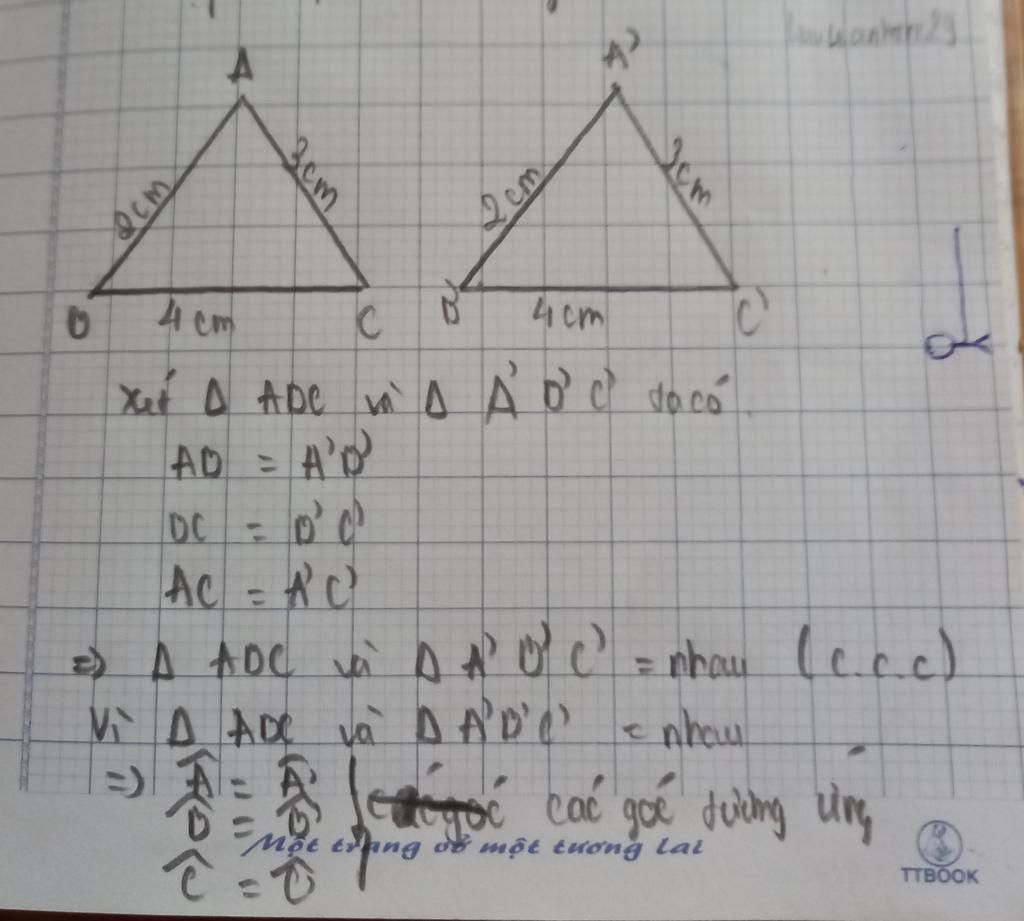 luuuanhtrr29
A
A'
2cm
3cm
2cm
3cm
B 4cm C
B' 4cm C'
xét Δ ABC và Δ A'B'C' ta có
AB = A'B'
BC = B'C'
AC = A'C'
=> Δ ABC và Δ A'B'C' = nhau (c.c.c)
Vì Δ ABC và Δ A'B'C' = nhau
=> Â = Â'
B̂ = B̂' các góc tương ứng
Một trang vở một tương lai
Ĉ = Ĉ'
TTBOOK